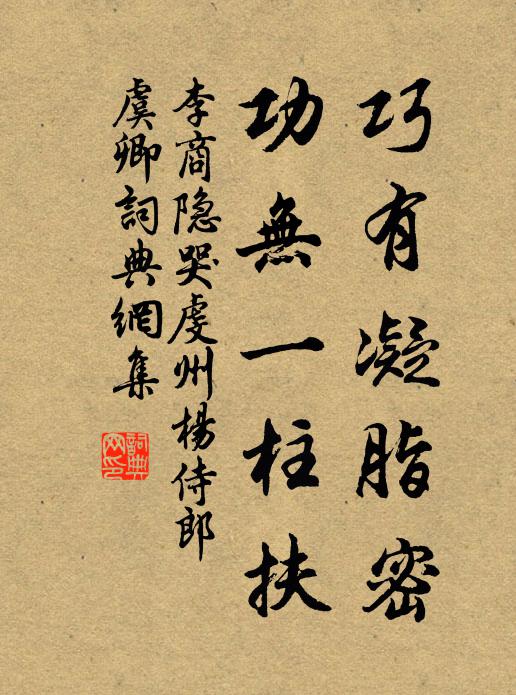 巧有凝脂密
功無一柱扶
李商隐哭虔州楊侍郎
虞卿詞典網集
詞典
网印